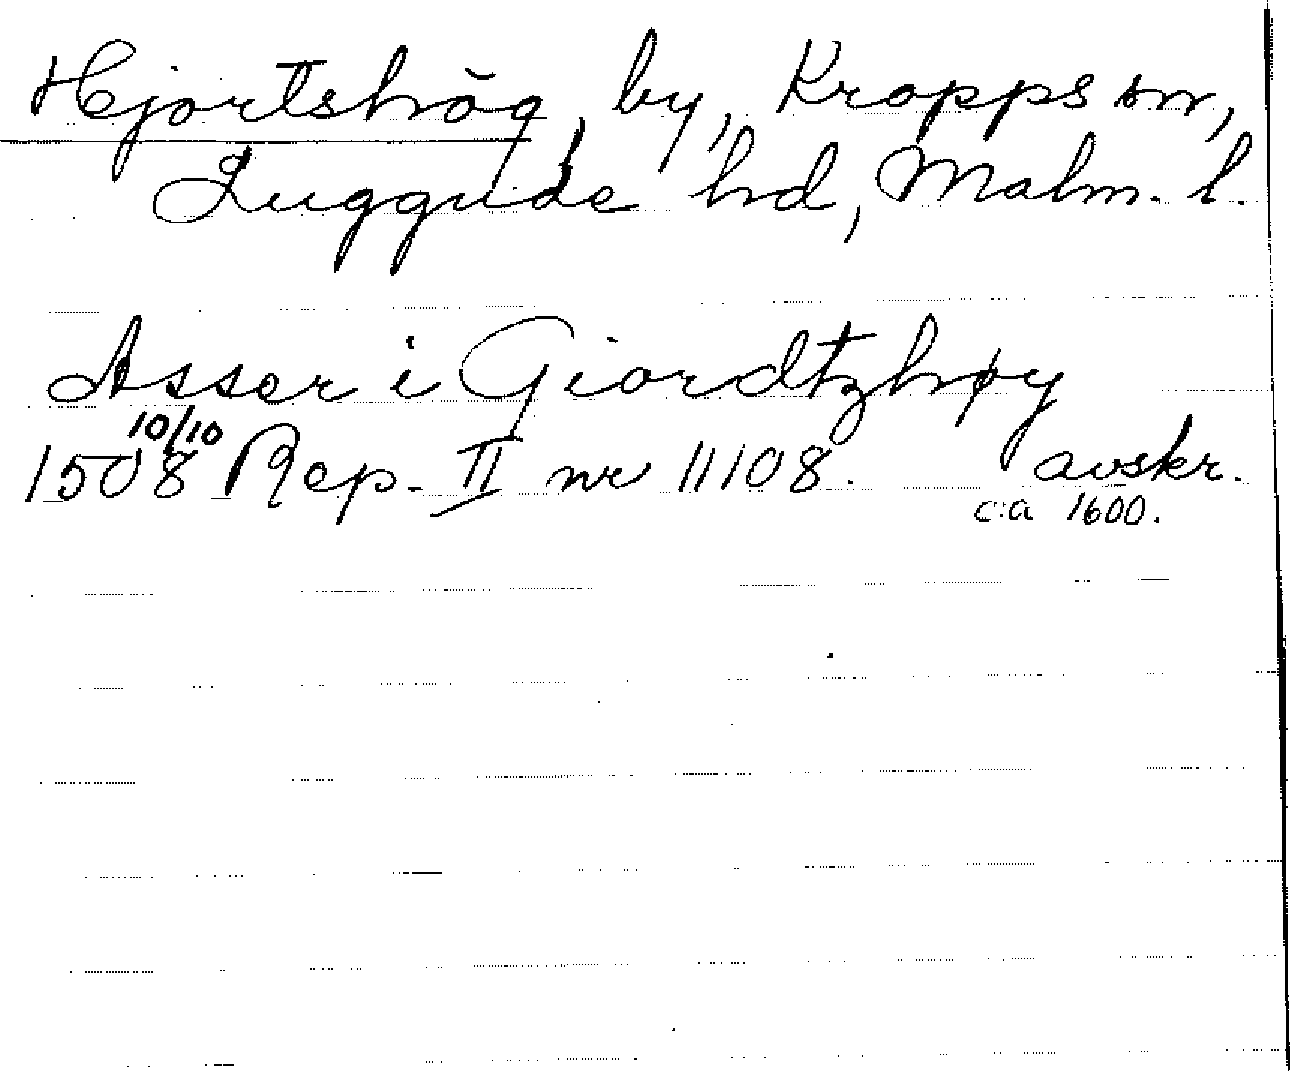 Hjortshög, by, Kropps sn,
Luggude hd, Malm. l.
Asser i Giordtzhøy
10/10
1508 Rep. II nr 11108. avskr.
c:a 1600.